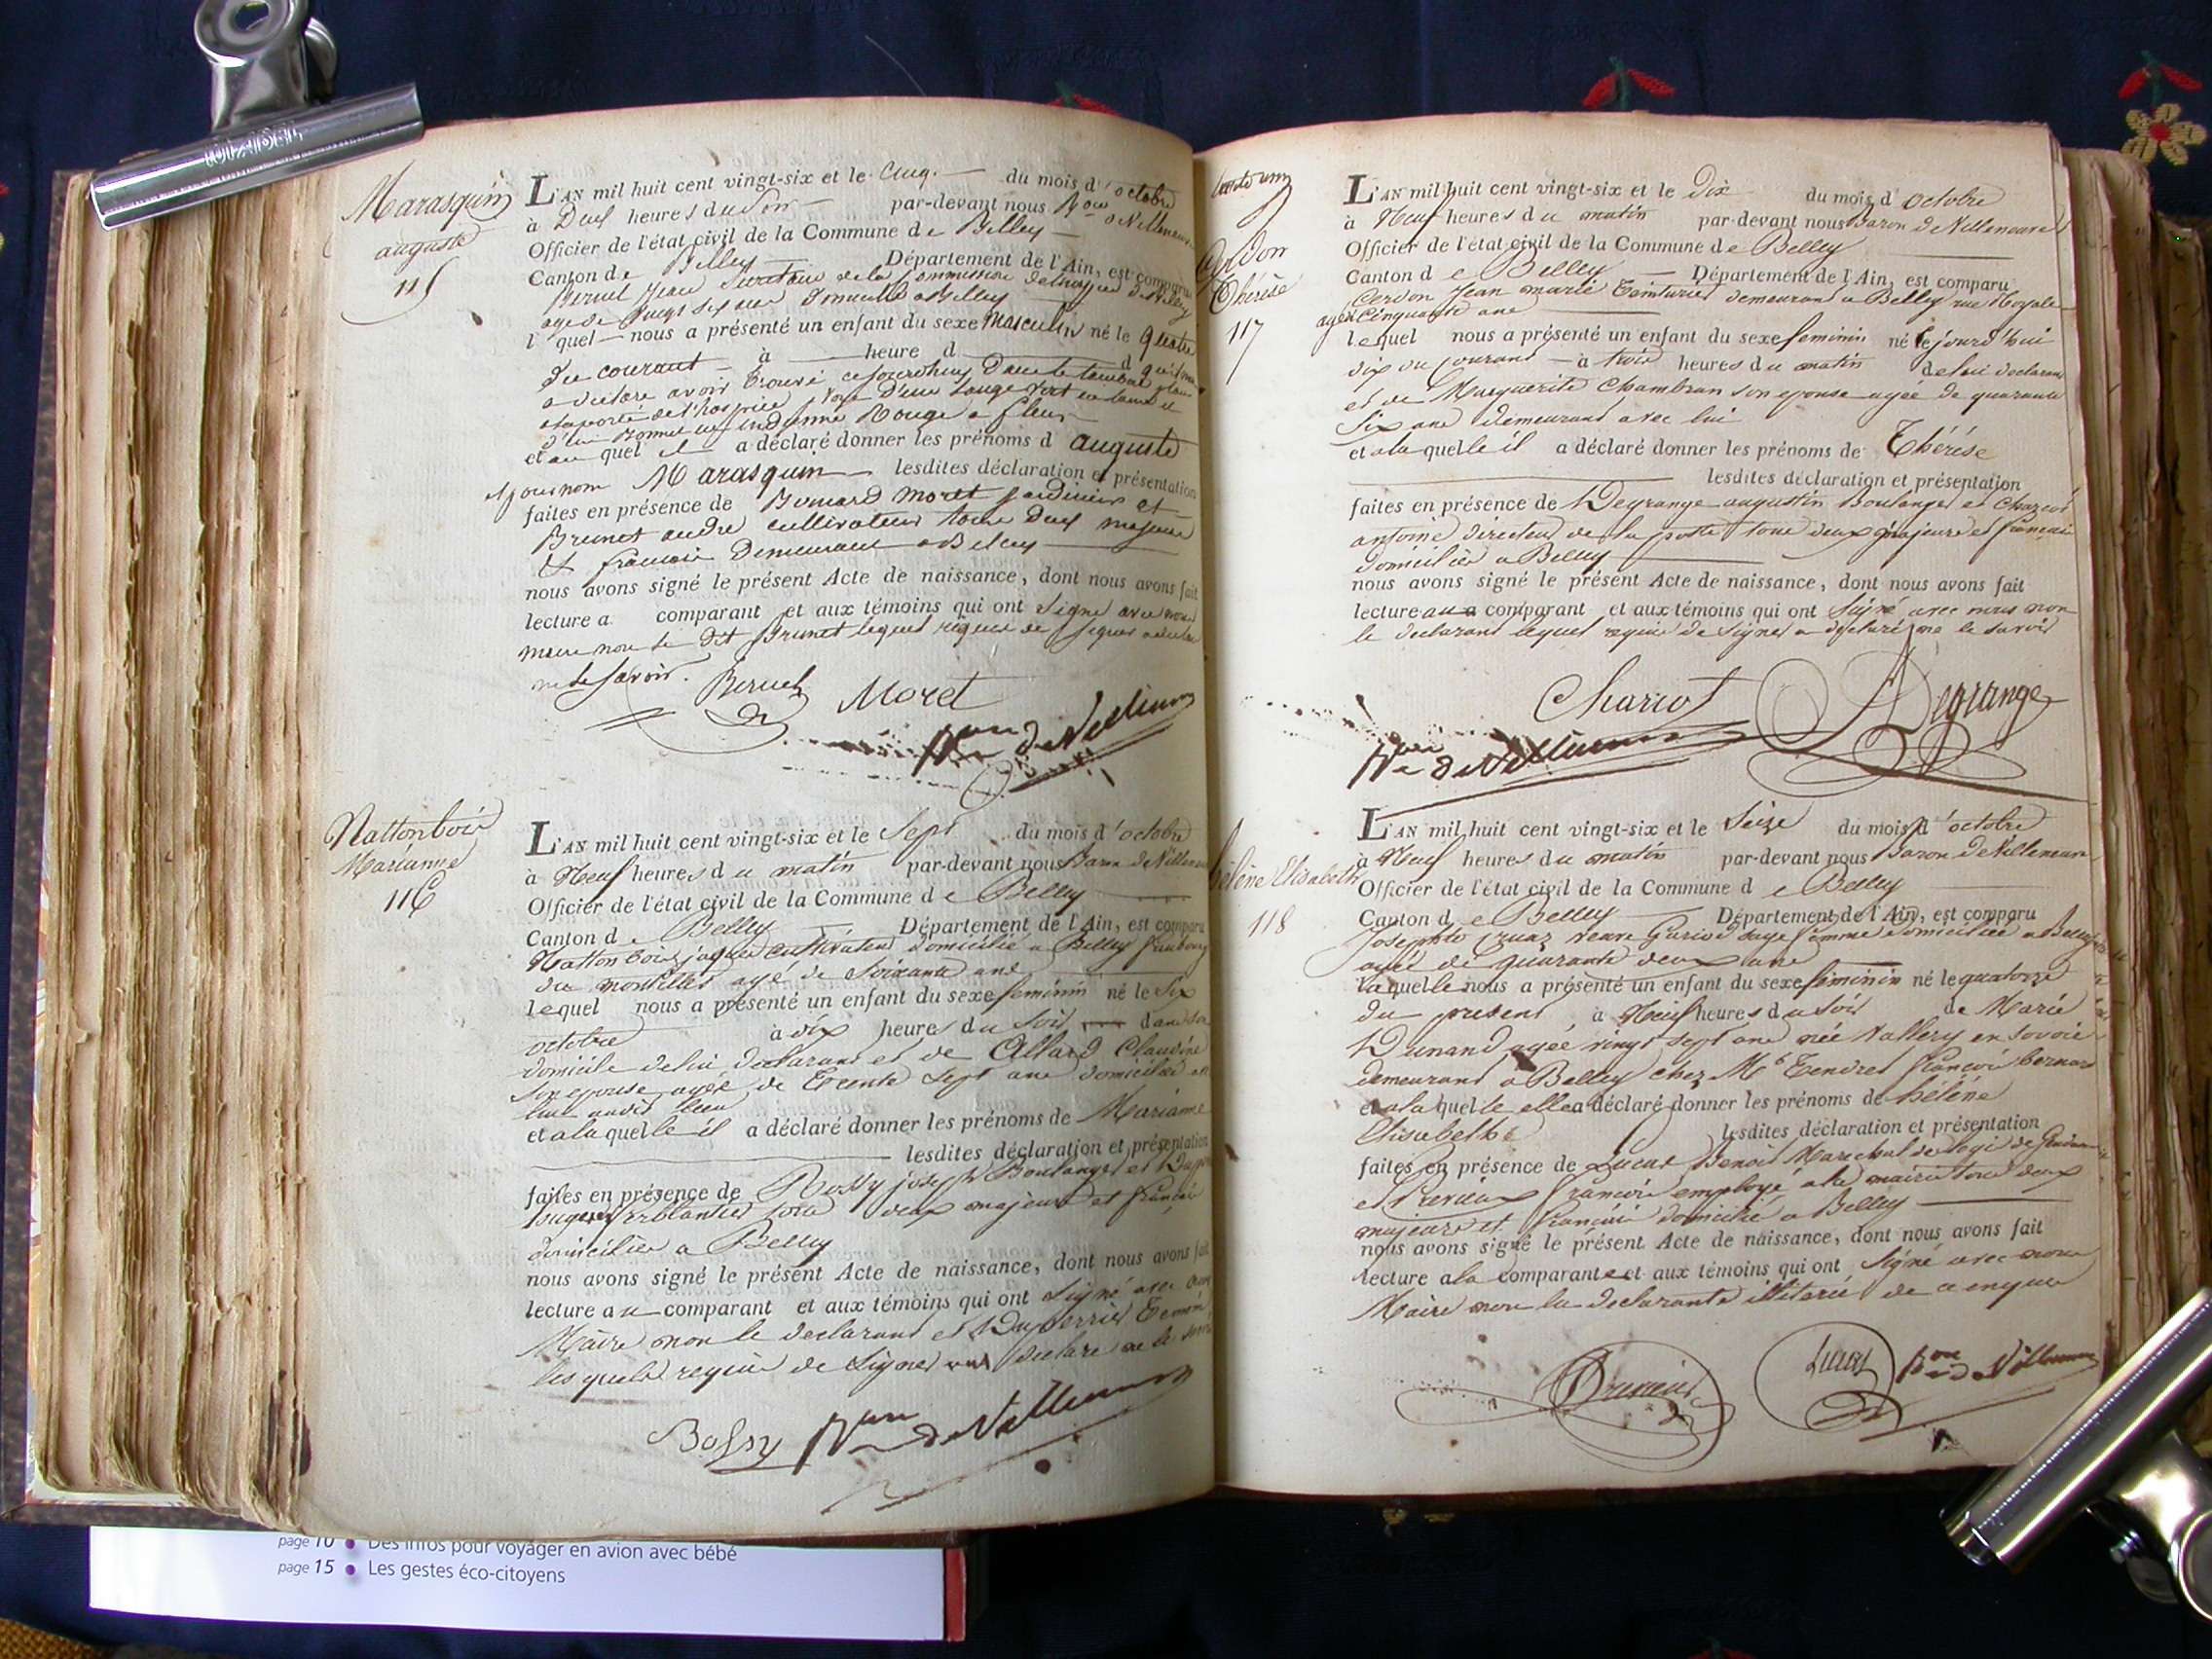 Marasquin
auguste
115
L'AN mil huit cent vingt-six et le Cinq. du mois d'octobre
à Deux heures du Soir par-devant nous Bon de Villeneuve
Officier de l'état civil de la Commune de Belley
Canton de Belley Département de l'Ain, est comparu
Bernet Jean de la Commission de
age de Vingt six ans Domicilié a Belley
lequel nous a présenté un enfant du sexe Masculin né le quatre
du courant à heure d d qu'il
a declare avoir trouvé ce jourdhuy Dans le tambour
de l'hospice d'un lange Vert
d'un Bonnet indienne Rouge a fleur
et au quel il a déclaré donner les prénoms d auguste
et pour nom Marasquin lesdites déclaration et présentation
faites en présence de Bernard Moret jardinier et
Brunet andre cultivateur tous Deux majeurs
& francais Demeurant a Belley
nous avons signé le présent Acte de naissance, dont nous avons fait
lecture a comparant et aux témoins qui ont Signé avec nous
maire non le dit Brunet lequel requis de Signer a declaré
ne le Savoir.
Bernet Moret
Bon de Villeneuve
Nattonbois
Marianne
116
L'AN mil huit cent vingt-six et le Sept du mois d'octobre
à Neuf heures du matin par-devant nous Baron de Villeneuve
Officier de l'état civil de la Commune de Belley
Canton de Belley Département de l'Ain, est comparu
Nattonbois jaques Cultivateur domicilié a Belley faubourg
du agé de Soixante ans
lequel nous a présenté un enfant du sexe feminin né le Six
octobre à dix heures du Soir dans son
domicile de lui declarant et de Allard Claudine
son epouse agée de Trente Sept ans domiciliée
lieu
et a la quelle il a déclaré donner les prénoms de Marianne
lesdites déclaration et présentation
faites en présence de Bossy joseph Boulanger et
ferblantier tous deux majeurs et francais
domiciliés a Belley
nous avons signé le présent Acte de naissance, dont nous avons fait
lecture au comparant et aux témoins qui ont Signé avec nous
Maire non le declarant et Duperrier Temoin
les quels requis de Signer ont declaré ne le savoir
Bossy Bon de Villeneuve
Cerdon
Thérèse
117
L'AN mil huit cent vingt-six et le Dix du mois d'octobre
à Neuf heures du matin par-devant nous Baron de Villeneuve
Officier de l'état civil de la Commune de Belley
Canton de Belley Département de l'Ain, est comparu
Cerdon Jean marie Teinturier demeurant a Belley rue Royale
agé cinquante ans
lequel nous a présenté un enfant du sexe feminin né cejourd'hui
dix du courant à trois heures du matin de lui declarant
et de Marguerite Chambran son epouse agée de quarante
Six ans demeurant avec lui
et a la quelle il a déclaré donner les prénoms de Thérèse
lesdites déclaration et présentation
faites en présence de Degrange augustin Boulanger et Charcot
antoine directeur de la poste tous deux majeurs et francais
domiciliés a Belley
nous avons signé le présent Acte de naissance, dont nous avons fait
lecture au comparant et aux témoins qui ont signé avec nous non
le declarant lequel requis de signer a declaré ne le savoir
Charcot Degrange
Bon de Villeneuve
hélène Elisabeth
118
L'AN mil huit cent vingt-six et le Seize du mois d'octobre
à Neuf heures du matin par-devant nous Baron de Villeneuve
Officier de l'état civil de la Commune de Belley
Canton de Belley Département de l'Ain, est comparu
Josephte veuve sage femme domiciliée a Belley
agée de quarante deux ans
laquelle nous a présenté un enfant du sexe feminin né le quatorze
du present à Neuf heures du Soir de Marie
Dunand agée vingt Sept ans née en Savoie
demeurant a Belley chez Mr Tendret françois bernard
et a la quelle elle a déclaré donner les prénoms de hélène
Elisabeth lesdites déclaration et présentation
faites en présence de Lucas Benoit Marechal de logis de Gendarmerie
et francois employé a la mairie tous deux
majeurs et francais domicilié a Belley
nous avons signé le présent Acte de naissance, dont nous avons fait
lecture a la comparante et aux témoins qui ont Signé avec nous
Maire non la declarante illiterée de ce enquise
Lucas Bon de Villeneuve
page 10 • Des infos pour voyager en avion avec bébé
page 15 • Les gestes éco-citoyens